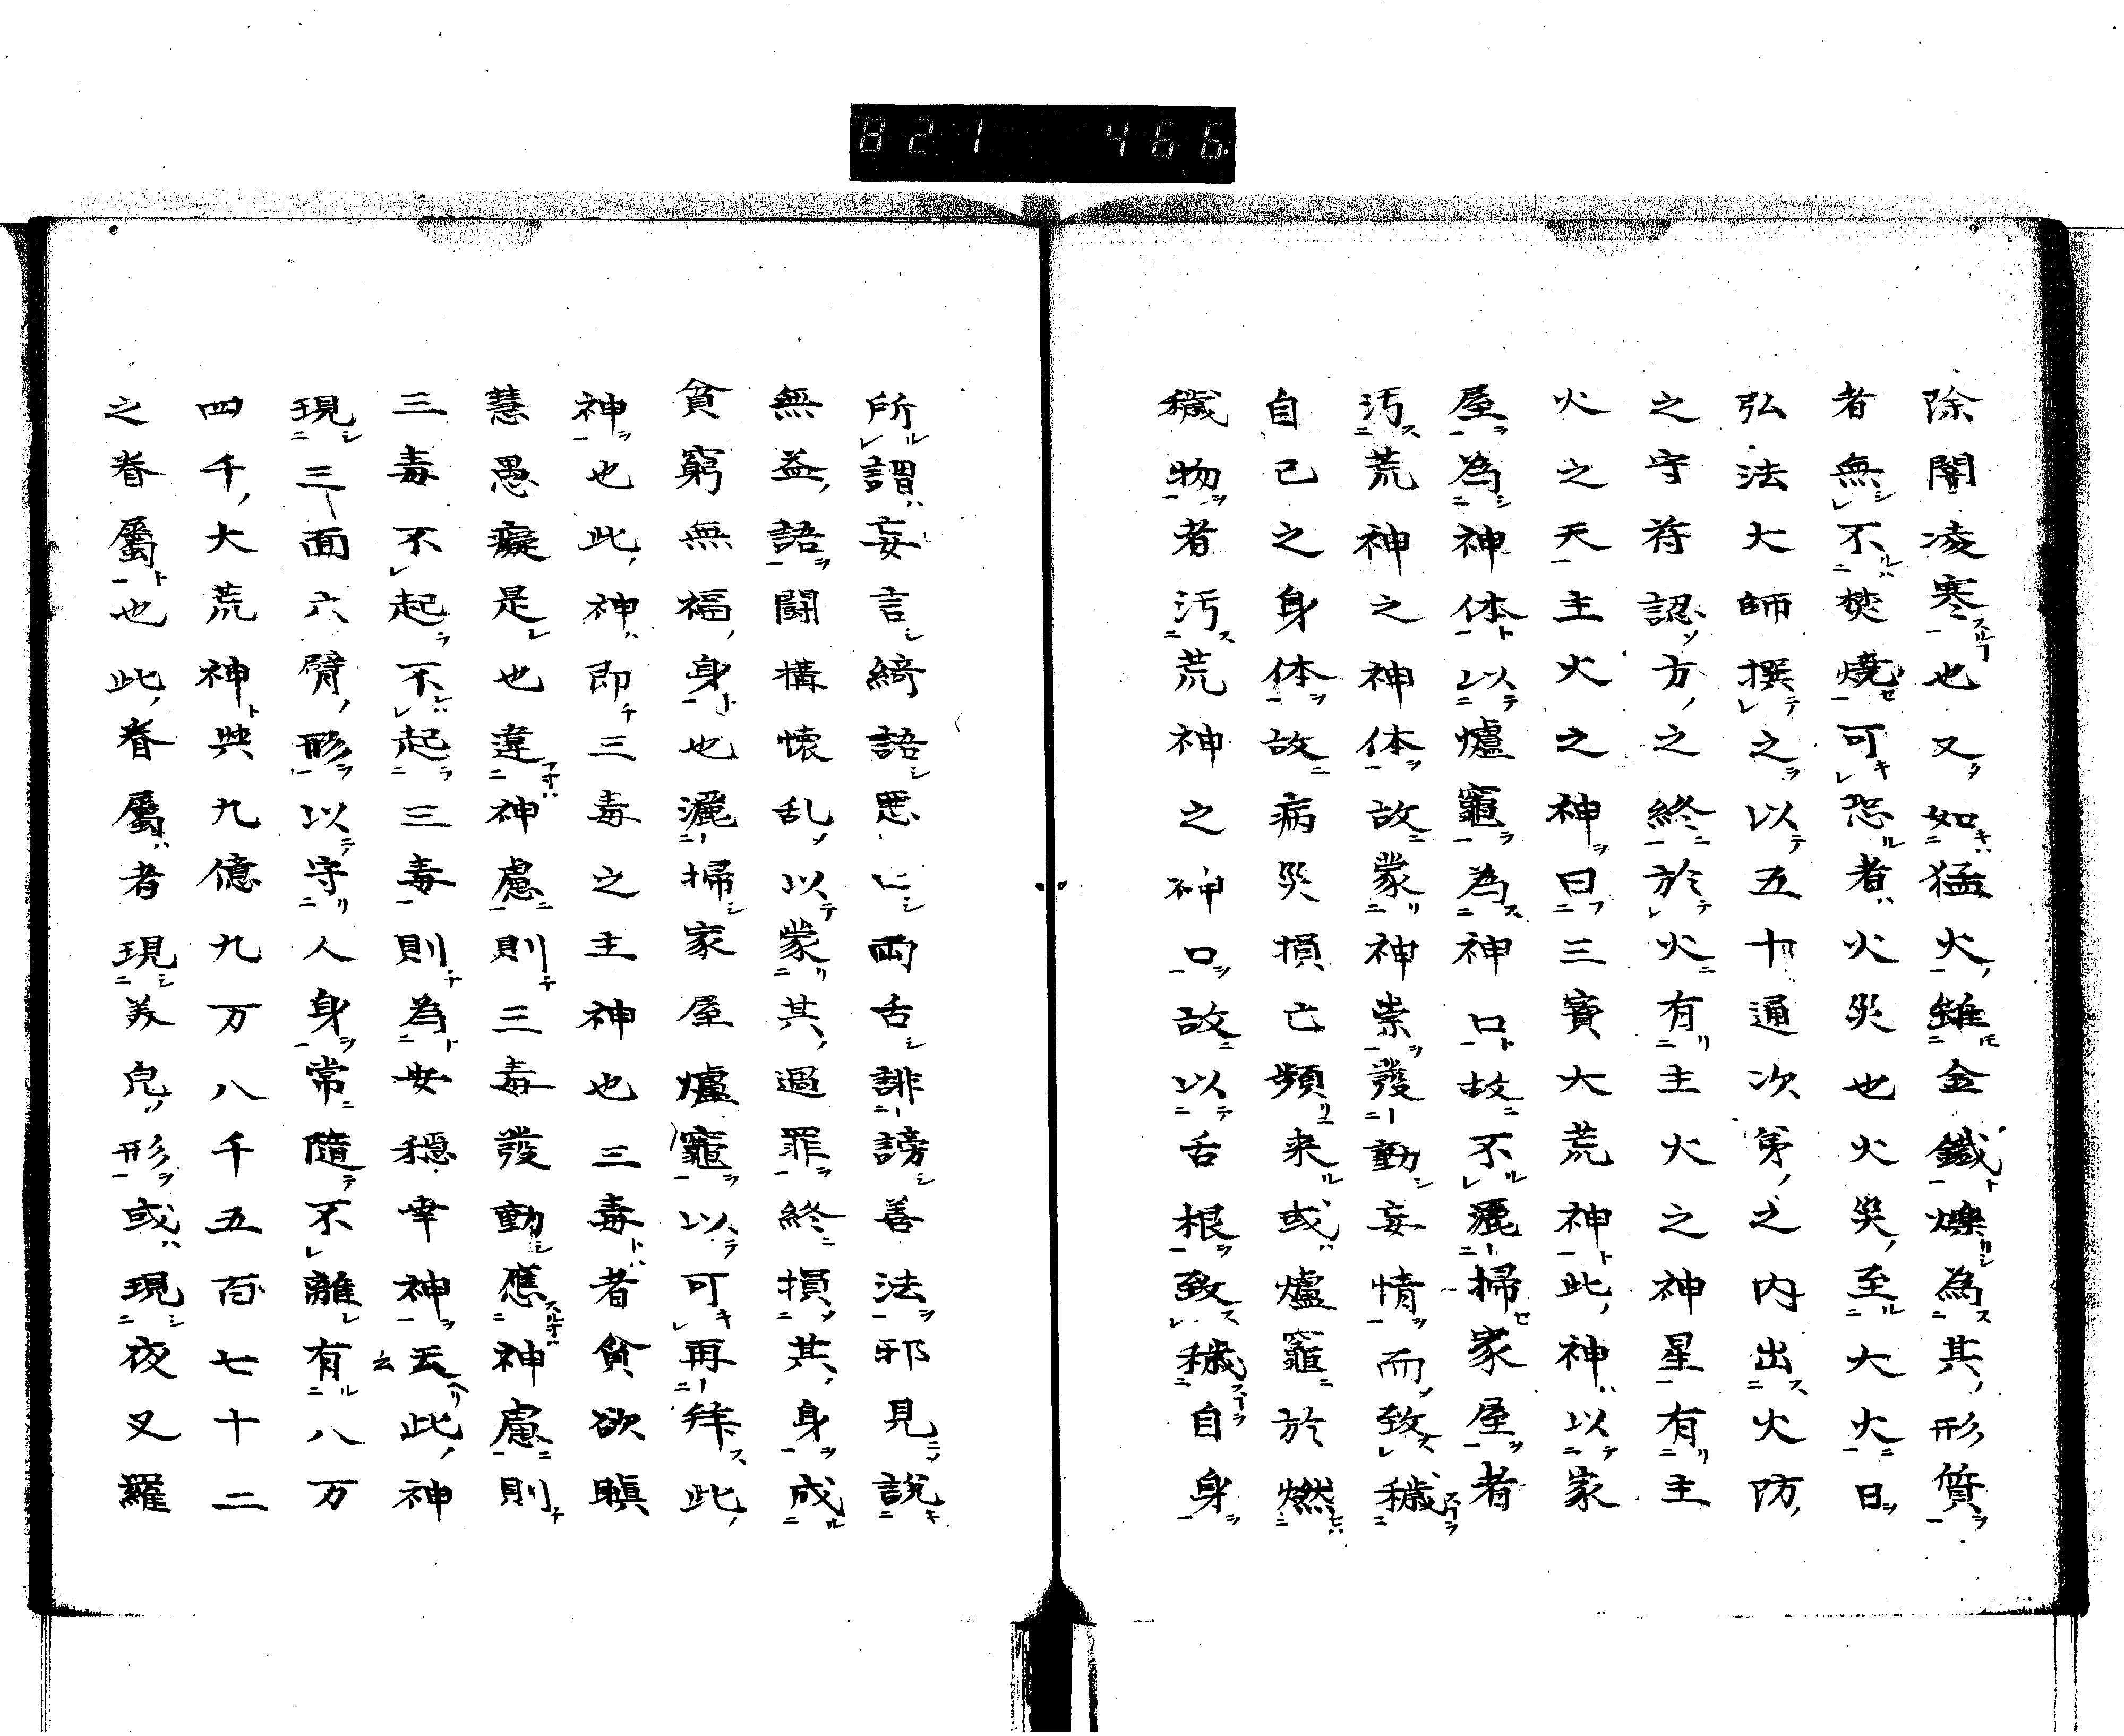 821 466
除闇凌寒也又如猛火雖金鐵爍為其形質
者無不焚燒可恐者火災也火災至大火曰
弘法大師撰之以五十通次第之内出火防
之守苻認方之終於火有主火之神星有主
火之天主火之神曰三寳大荒神此神以家
屋為神体以爐竈為神口故不灑掃家屋者
汚荒神之神体故蒙神祟發動妄情而致穢
自己之身体故病災損亡頻来或爐竈於燃
穢物者汚荒神之神口故以舌根致穢自身
所謂妄言綺語悪口両舌誹謗善法邪見説
無益語鬪構懐乱以蒙其過罪終損其身成
貧窮無福身也灑掃家屋爐竈以可再拜此
神也此神即三毒之主神也三毒者貧欲瞋
慧愚癡是也違神慮則三毒發動應神慮則
三毒不起不起三毒則為安穏幸神云此神
現三面六臂形以守人身常隨不離有八万
四千大荒神與九億九万八千五百七十二
之眷屬也此眷屬者現美皃形或現夜叉羅